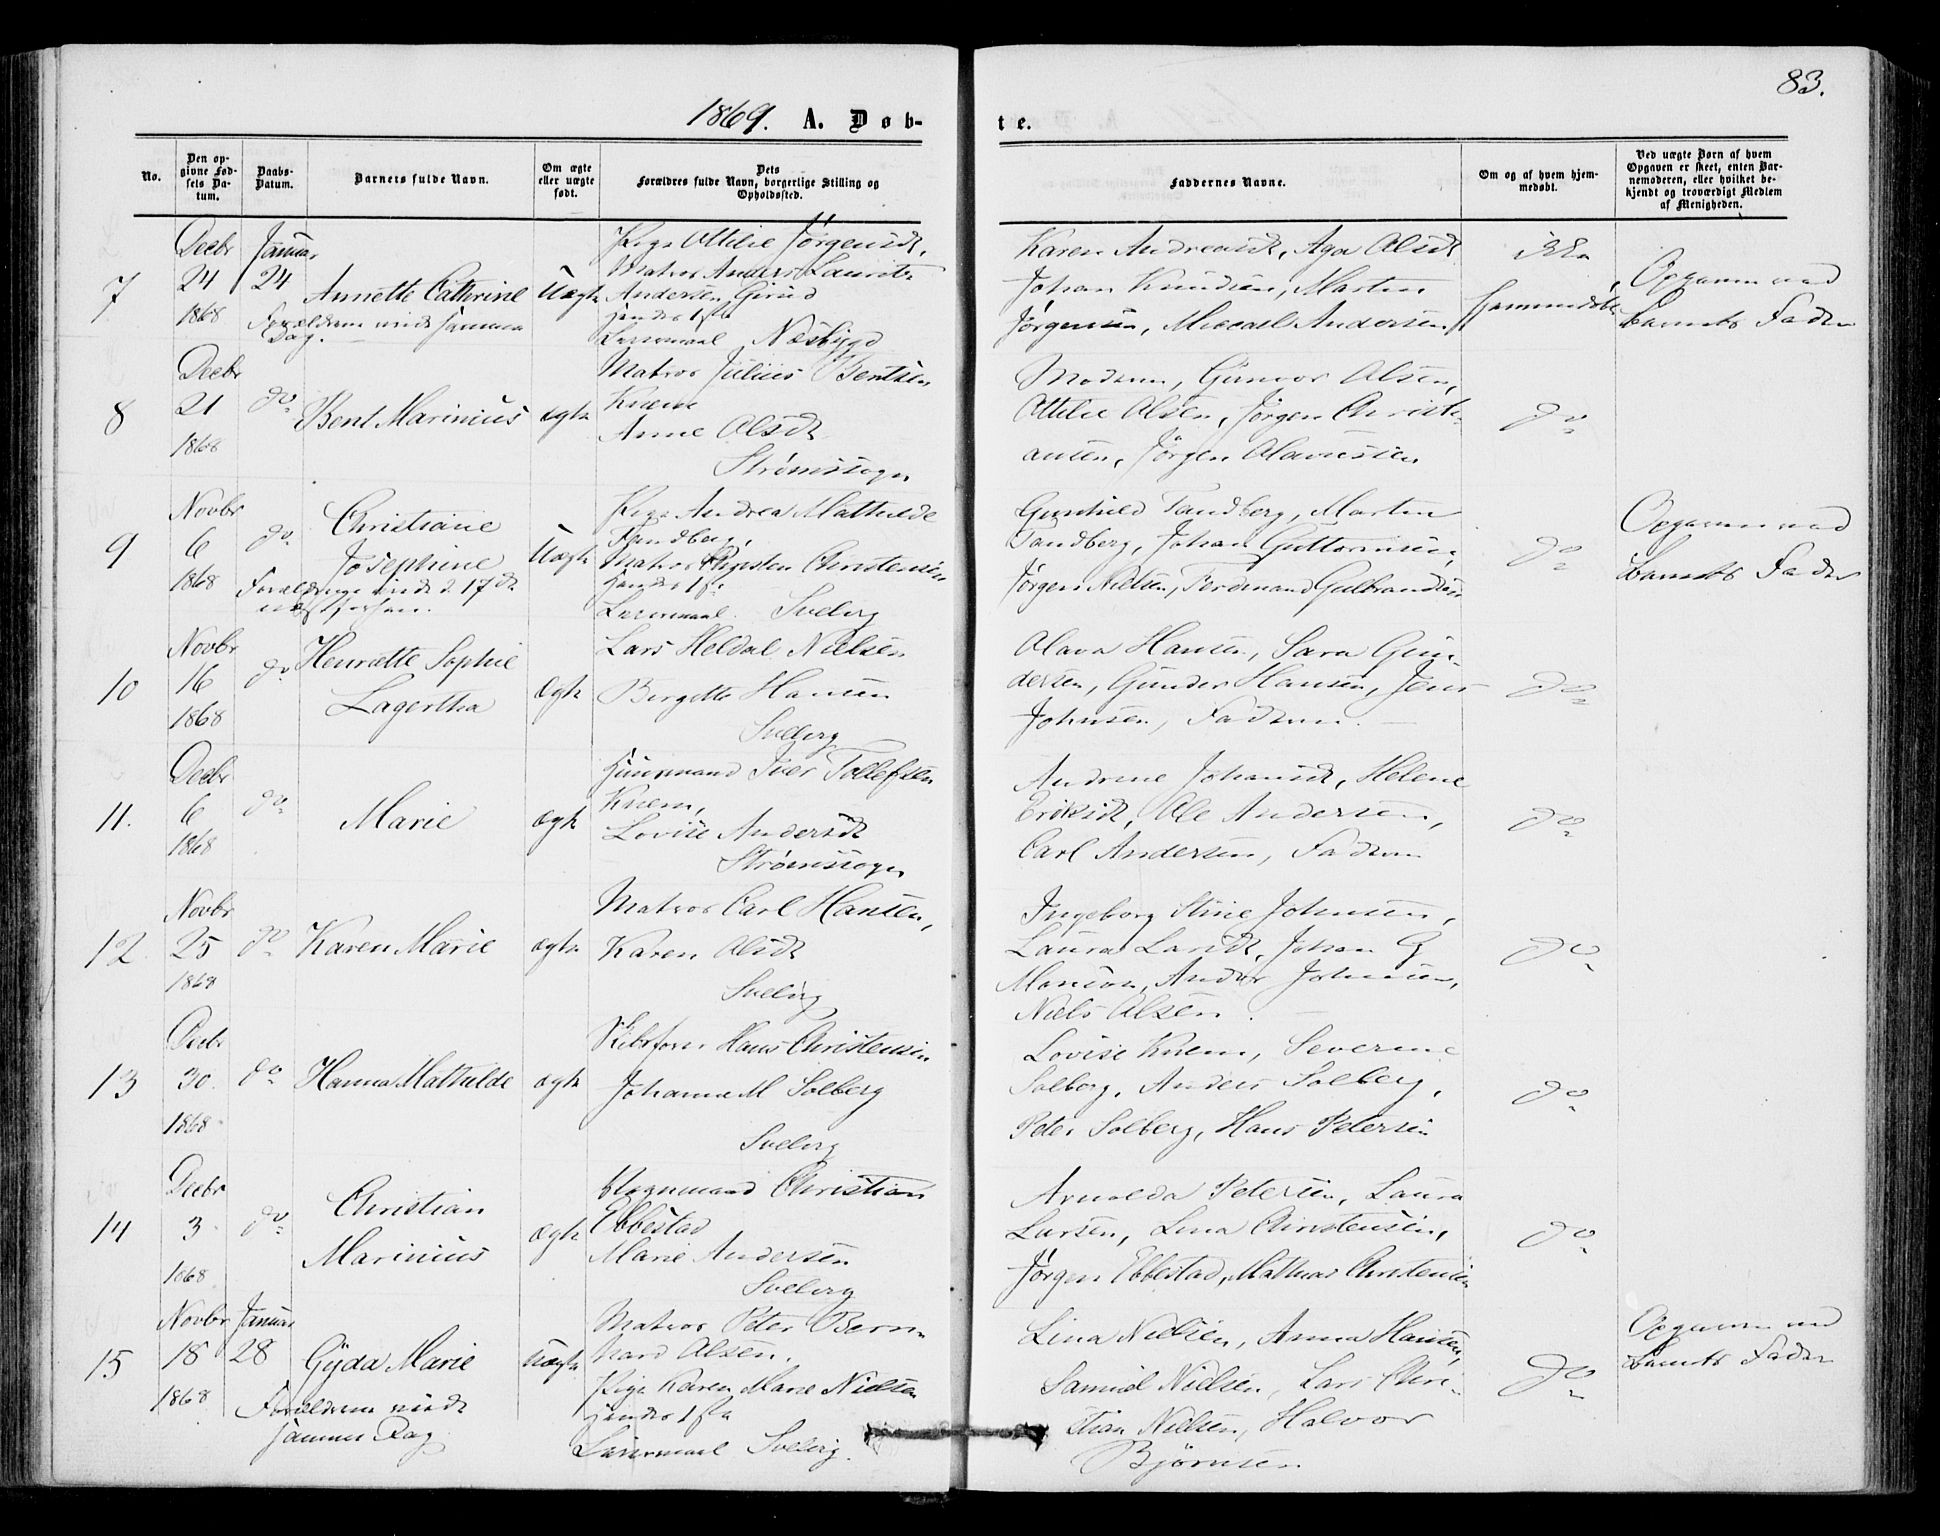 83.
1869. A. Døb-
te.
No.
Den op-
givne Fød-
sels Da-
tum.
Daabs-
Datum.
Barnets fulde Navn.
Om ægte
eller uægte
født.
Dets
Forældres fulde Navn, borgerlige Stilling og
Opholdssted.
Faddernes Navne.
Om og af hvem hjem-
medøbt.
Ved uægte Børn af hvem
Opgaven er skeet, enten Bar-
nemoderen, eller hvilket be-
kjendt og troværdigt Medlem
af Menigheden.
7
Decbr
24
1868
Januar
24
Annette Cathrine
Forældrene viede samme
Dag.
Uægte
Pige Ottilie Jørgensdt,
Matros Anders Laurits
Andersen
hendes 1ste
Leiermaal Næsbygd
Karen Andreasdt, Aga Olsdt
Johan Knudsen, Martin
Jørgensen, Micael Andersen
ikke
hjemmedøbt
Opgaven ved
Barnets Fader
8
Decbr
21
1868
do
Bent Marinius
ægte
Matros Julius Bentsen
Knem
Anne Olsdt
Strømssogn
Moderen, Gunvor Olsen,
Ottilie Olsen, Jørgen Christi-
ansen, Jørgen Olavessen
do
9
Novbr
6
1868
do
Christiane
Josephine
Forældrene viede d. 17de
næstforhen.
Uægte
Pige Andrea Mathilde
Tandberg,
Matros Christen Christensen
hendes 1ste
Leiermaal. Svelvig
Gunhild Tandberg, Martin
Tandberg, Johan Guttormsen,
Jørgen Nielsen, Ferdinand Gulbrandsen
do
Opgaven ved
Barnets Fader
10
Novbr
16
1868
do
Henriette Sophie
Lagertha
Ægte
Lars Heldal Nielsen
Birgitte Hansen
Svelvig
Olava Hansen, Sara Gun-
dersen, Gunder Hansen, Jens
Johnsen, Faderen.
do
11.
Decbr
6
1868
do
Marie
ægte
Huusmand Iver Tollefsen
Knem,
Lovise Andersdt
Strømssogn
Andrine Johansdt, Helene
Eriksdt, Ole Andersen,
Carl Andersen, Faderen
do
12.
Novbr
25
1868
do
Karen Marie
ægte
Matros Carl Hansen,
Karen Olsdt
Svelvig
Ingeborg Stine Johnsen,
Laura Larsdt, Johan G
Monson, Anders Johnsen,
Niels Olsen.
do
13
Decbr
30.
1868
do
Hanna Mathilde
ægte
Skibsfører Hans Christensen
Johanne M Solberg
Svelvig
Lovise Knem, Severine
Solberg, Anders Solberg,
Peter Solberg, Hans Petersen
do
14
Decbr
3.
1868
do
Christian
Marinius
Ægte
Vognmand Christian
Ebbestad
Marie Andersen
Svelvig
Arnolda Petersen, Laura
Larsen, Lina Christensen,
Jørgen Ebbestad, Mathias Christensen
do
15
Novbr
18
1868
Januar
28
Gyda Marie
Forældrene viede
samme Dag
Uægte
Matros Peter Bern-
hard Olsen.
Pige Karen Marie Nielsen
hendes 1ste
Leiermaal Svelvig.
Lina Nielsen, Anna Hansen,
Samuel Nielsen, Lars Chri-
stian Nielsen, Halvor
Bjørnsen
do
Opgaven ved
Barnets Fader